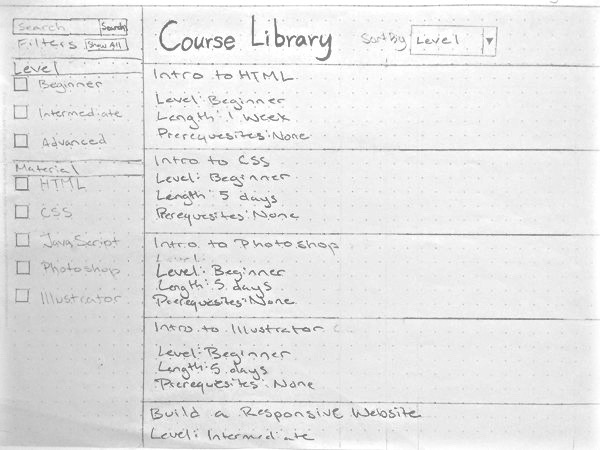 Search Search
Filters Show All
Level
Beginner
Intermediate
Advanced
Material
HTML
CSS
JavaScript
Photoshop
Illustrator
Course Library
Sort By Level
Intro to HTML
Level: Beginner
Length: 1 Week
Prerequesites: None
Intro to CSS
Level: Beginner
Length: 5 days
Prerequesites: None
Intro to Photoshop
Level: Beginner
Length: 5 days
Prerequesites: None
Intro to Illustrator
Level: Beginner
Length: 5 days
Prerequesites: None
Build a Responsive Website
Level: Intermediate